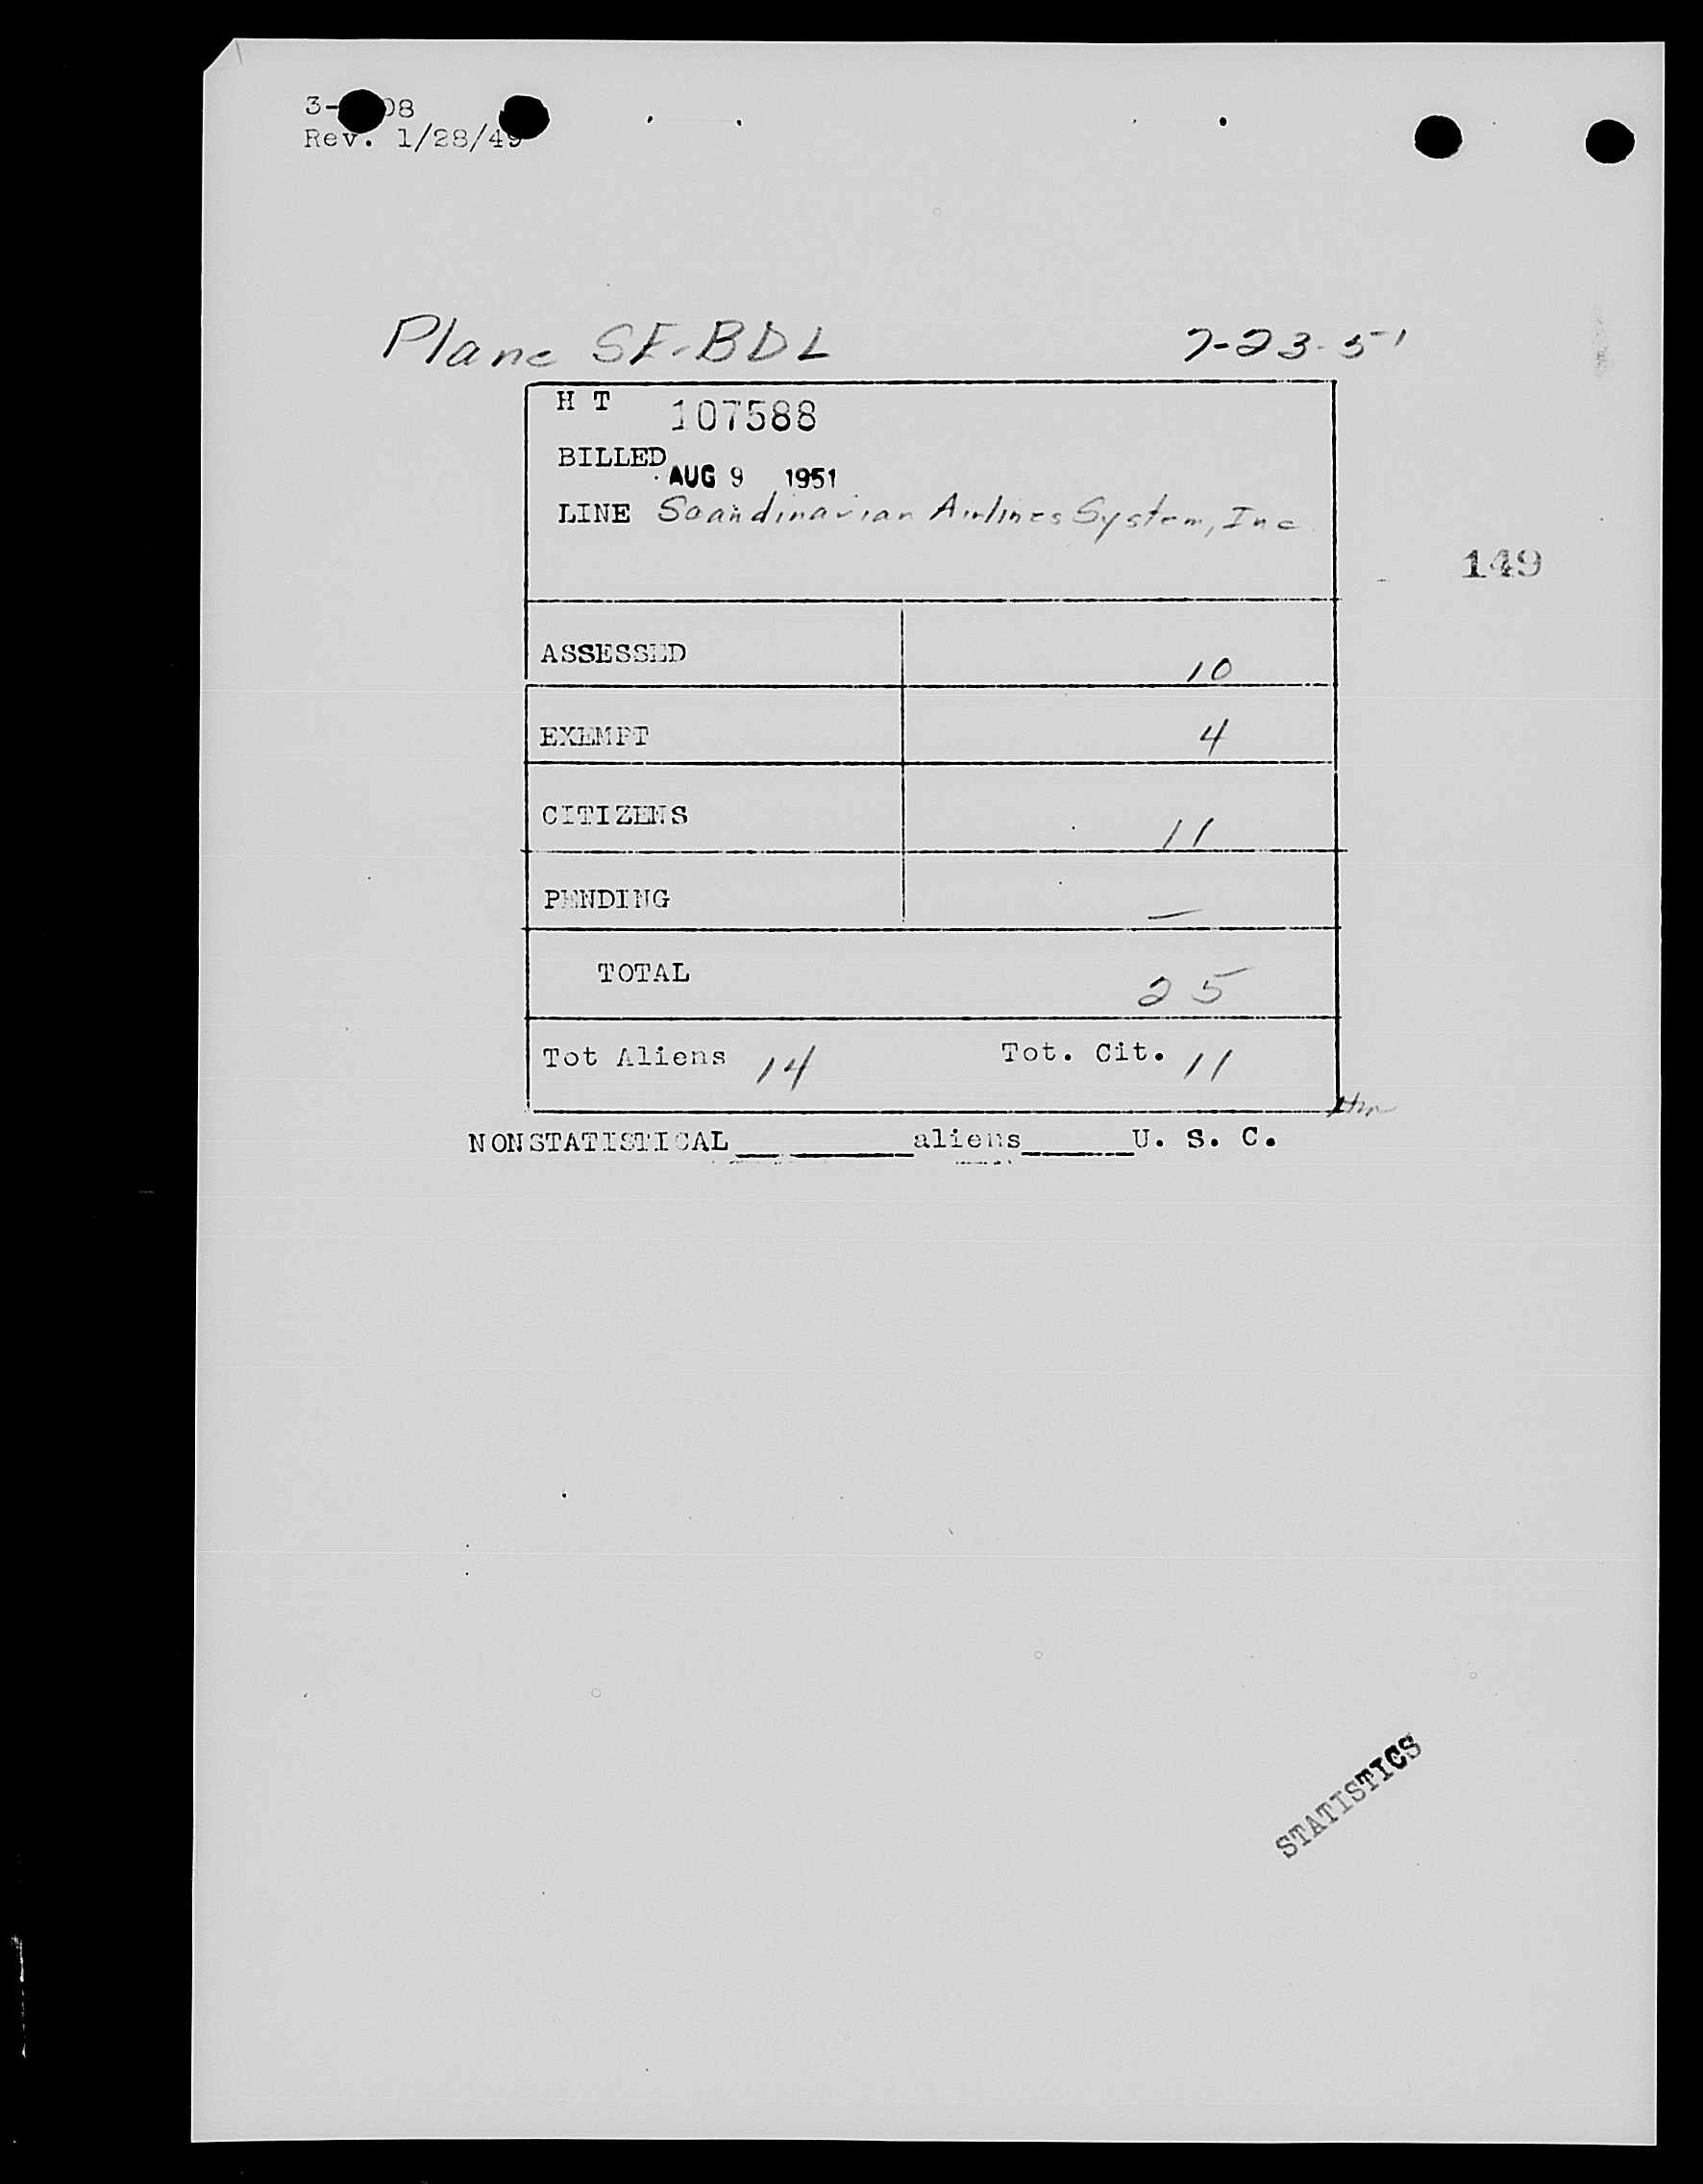 3-  08
Rev. 1/28/49
Plane SE-BDL 7-23-51
H T 107588
BILLED AUG 9 1951
LINE Scandinavian Airlines System, Inc
149
ASSESSED 10
EXEMPT 4
CITIZENS 11
PENDING —
TOTAL 25
Tot Aliens 14 Tot. Cit. 11
NONSTATISTICAL________aliens_____U. S. C.
STATISTICS